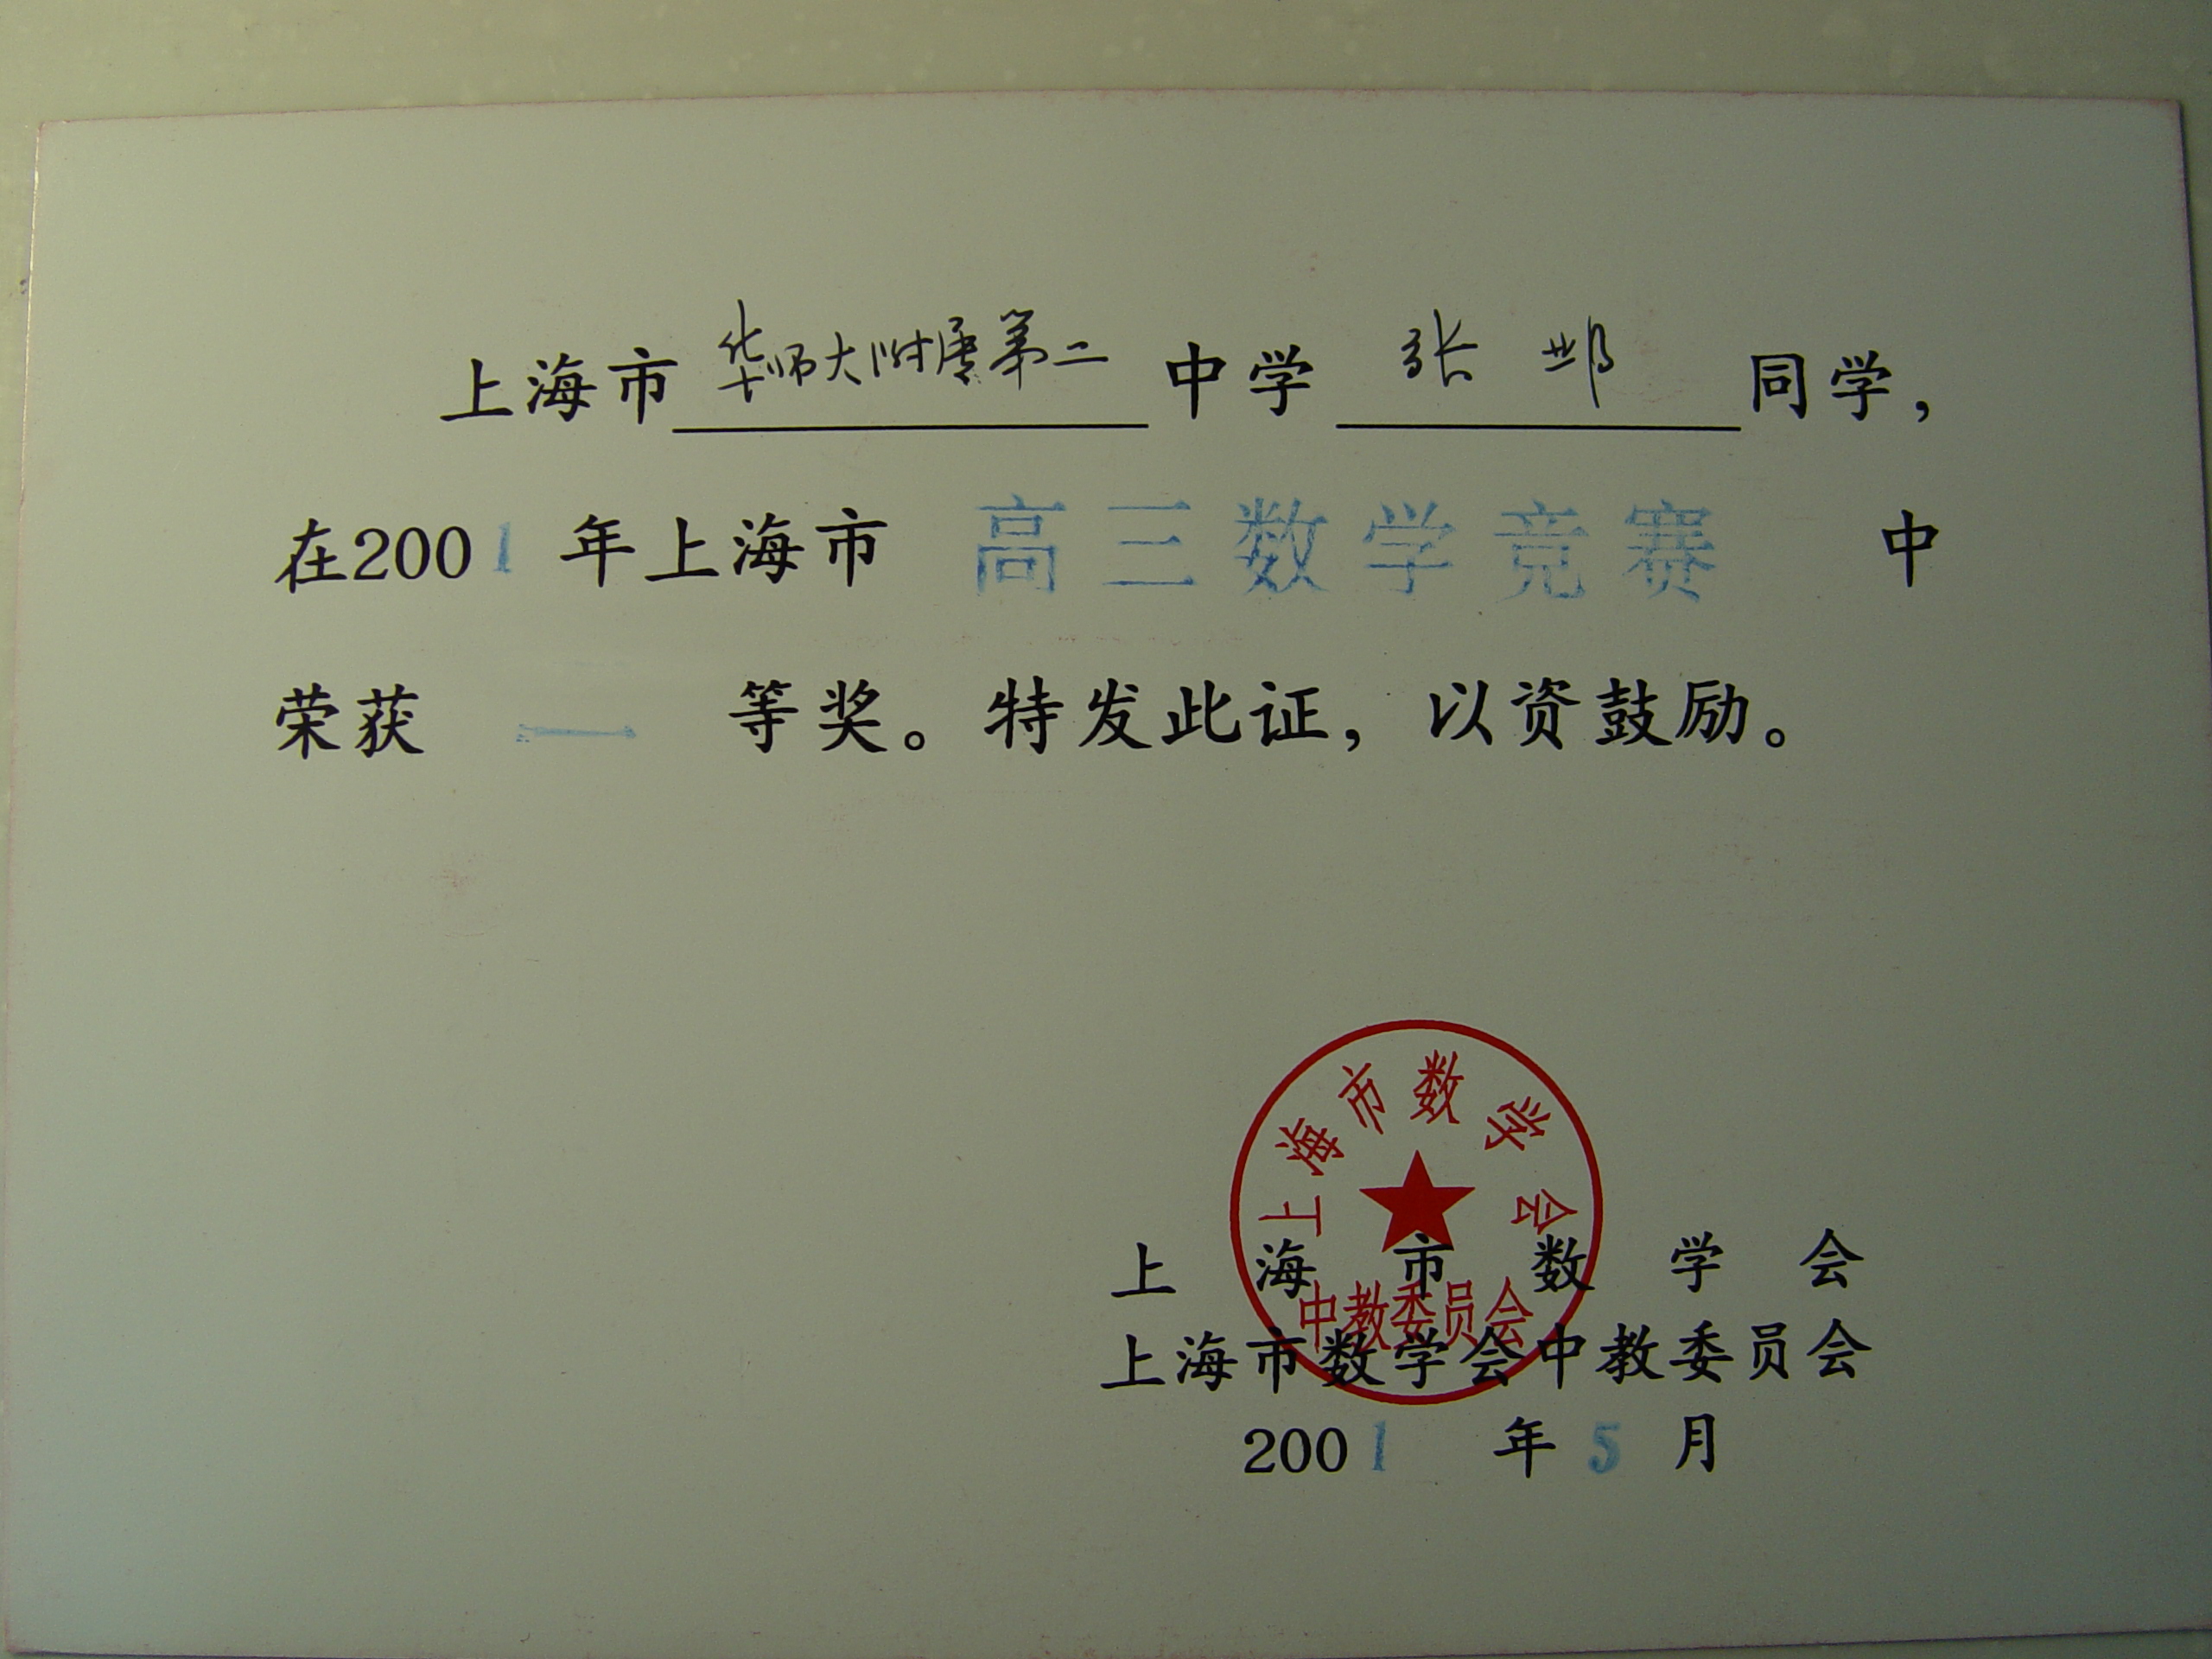 上海市华师大附属第二中学 张邺 同学，
在2001年上海市 高三数学竞赛 中
荣获 一 等奖。特发此证，以资鼓励。
上海市数学会
中教委员会
上海市数学会
上海市数学会中教委员会
2001 年 5 月